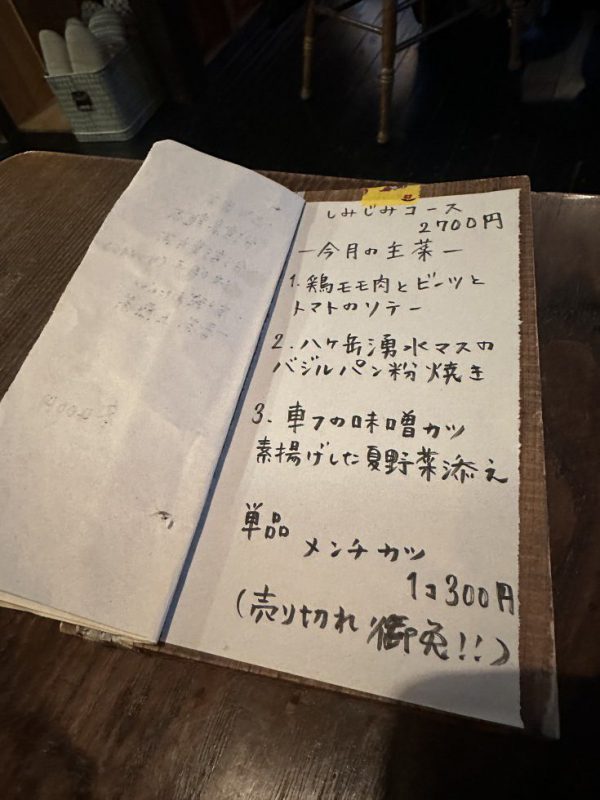 しみじみコース
2700円
―今月の主菜―
1.鶏モモ肉とビーツと
トマトのソテー
2.八ヶ岳湧水マスの
バジルパン粉焼き
3.車フの味噌カツ
素揚げした夏野菜添え
単品
メンチカツ
1コ300円
(売り切れ御免!!)